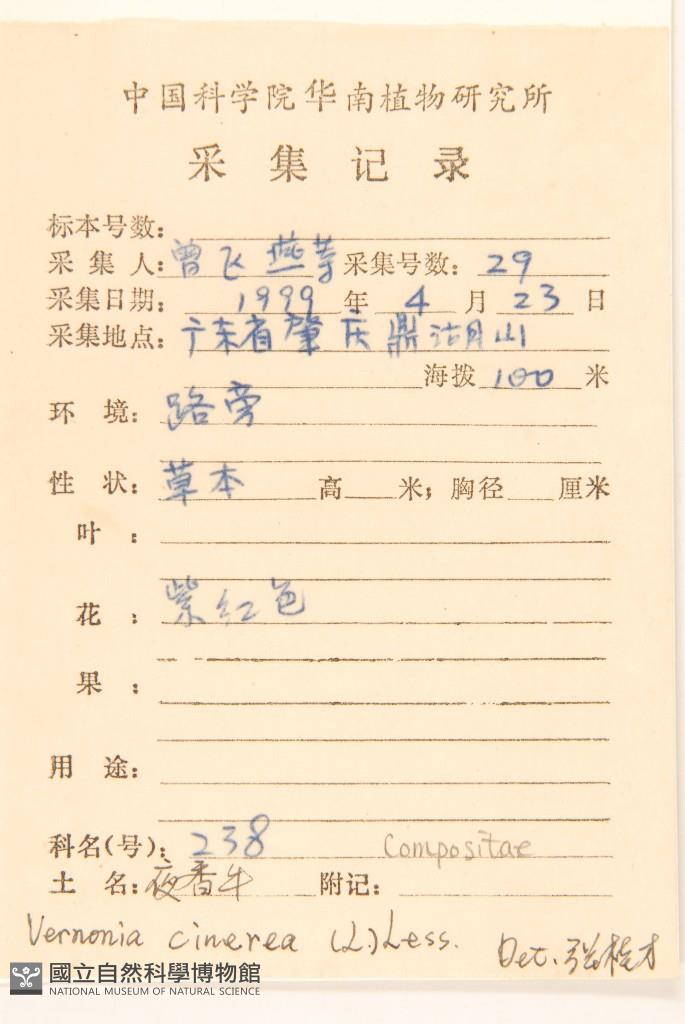 中国科学院华南植物研究所
采集记录
标本号数:
采集人:曾飞燕等 采集号数:29
采集日期:1999年4月23日
采集地点:广东省肇庆鼎湖山
海拨100米
环境:路旁
性状:草本 高 米;胸径 厘米
叶:
花:紫红色
果:
用途:
科名(号):238 Compositae
土名:夜香牛 附记:
Vernonia cinerea (L.) Less.
Det. 张桂才
國立自然科學博物館
NATIONAL MUSEUM OF NATURAL SCIENCE